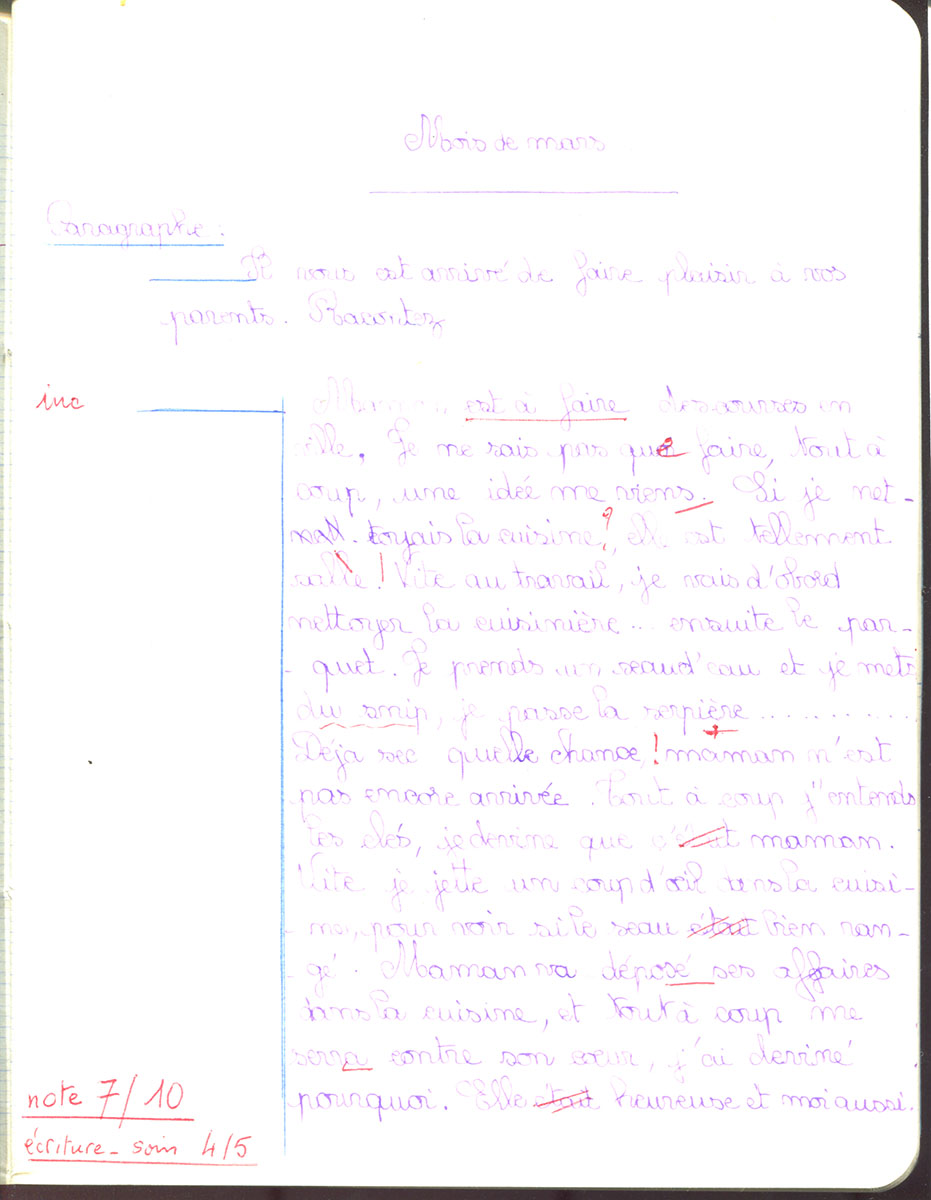 Mois de mars
Paragraphe :
Il vous est arrivé de faire plaisir à vos
parents. Racontez
inc
Maman est à faire des courses en
ville. Je ne sais pas que faire, tout à
coup, une idée me viens. Si je net-
toyais la cuisine ?, elle est tellement
salie ! Vite au travail, je vais d'abord
nettoyer la cuisinière... ensuite le par-
- quet. Je prends un seau d'eau et je mets
du smip, je passe la serpière ..........
Déja sec quelle chance, ! maman n'est
pas encore arrivée. Tout à coup j'entends
les clés, je devine que c'était maman.
Vite je jette un coup d'œil dans la cuisi-
- ne, pour voir si le seau était bien ran-
- gé. Maman va déposé ses affaires
dans la cuisine, et tout à coup me
serra contre son cœur, j'ai deviné
pourquoi. Elle était heureuse et moi aussi.
note 7/10
écriture - soin 4/5